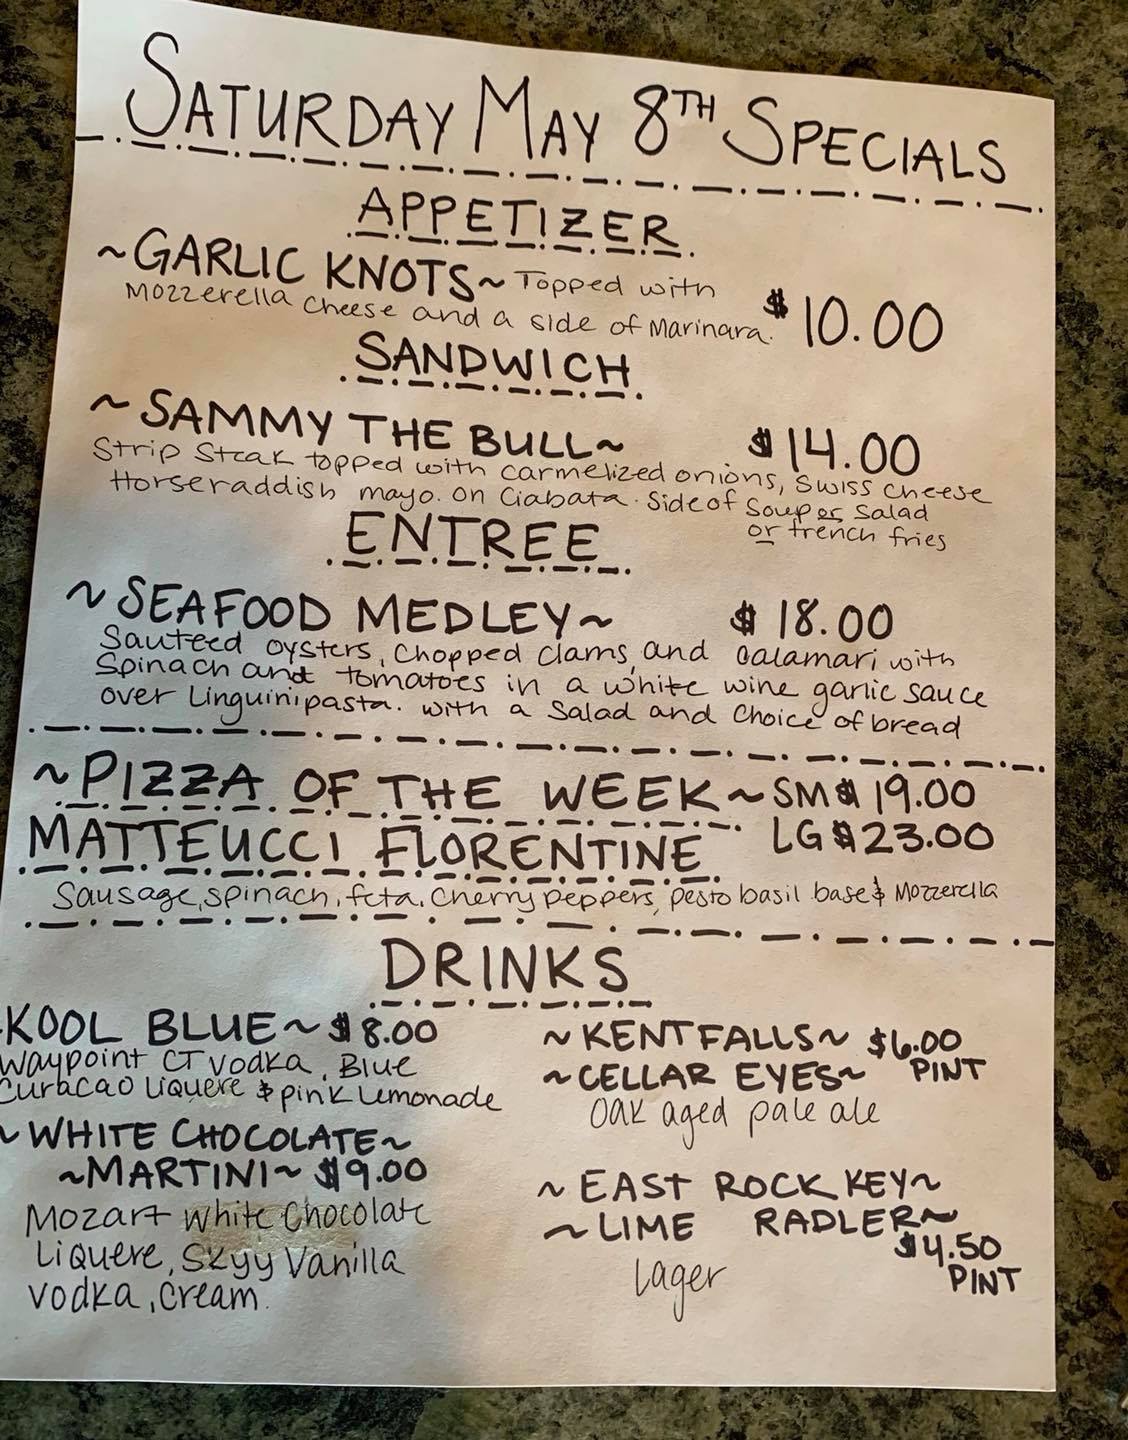 SATURDAY MAY 8TH SPECIALS
APPETIZER
~GARLIC KNOTS~ Topped with
Mozzerella Cheese and a side of Marinara. $10.00
SANDWICH
~SAMMY THE BULL~ $14.00
Strip Steak topped with carmelized onions, Swiss Cheese
Horseraddish mayo. on Ciabata. Side of Soup or Salad
or french fries
ENTREE
~SEAFOOD MEDLEY~ $18.00
Sauteed oysters, Chopped Clams, and Calamari with
Spinach and tomatoes in a white wine garlic sauce
over Linguini pasta. with a Salad and Choice of bread
~PIZZA OF THE WEEK~ SM $19.00
MATTEUCCI FLORENTINE LG $23.00
Sausage, spinach, feta, Cherry peppers, pesto basil base & Mozzerella
DRINKS
KOOL BLUE~ $8.00
Waypoint CT Vodka, Blue
Curacao Liquere & pink Lemonade
~WHITE CHOCOLATE~
~MARTINI~ $9.00
Mozart White Chocolate
Liquere, Skyy Vanilla
Vodka, Cream.
~KENT FALLS~ $6.00
~CELLAR EYES~ PINT
Oak aged pale ale
~EAST ROCK KEY~
~LIME RADLER~
$4.50
Lager PINT